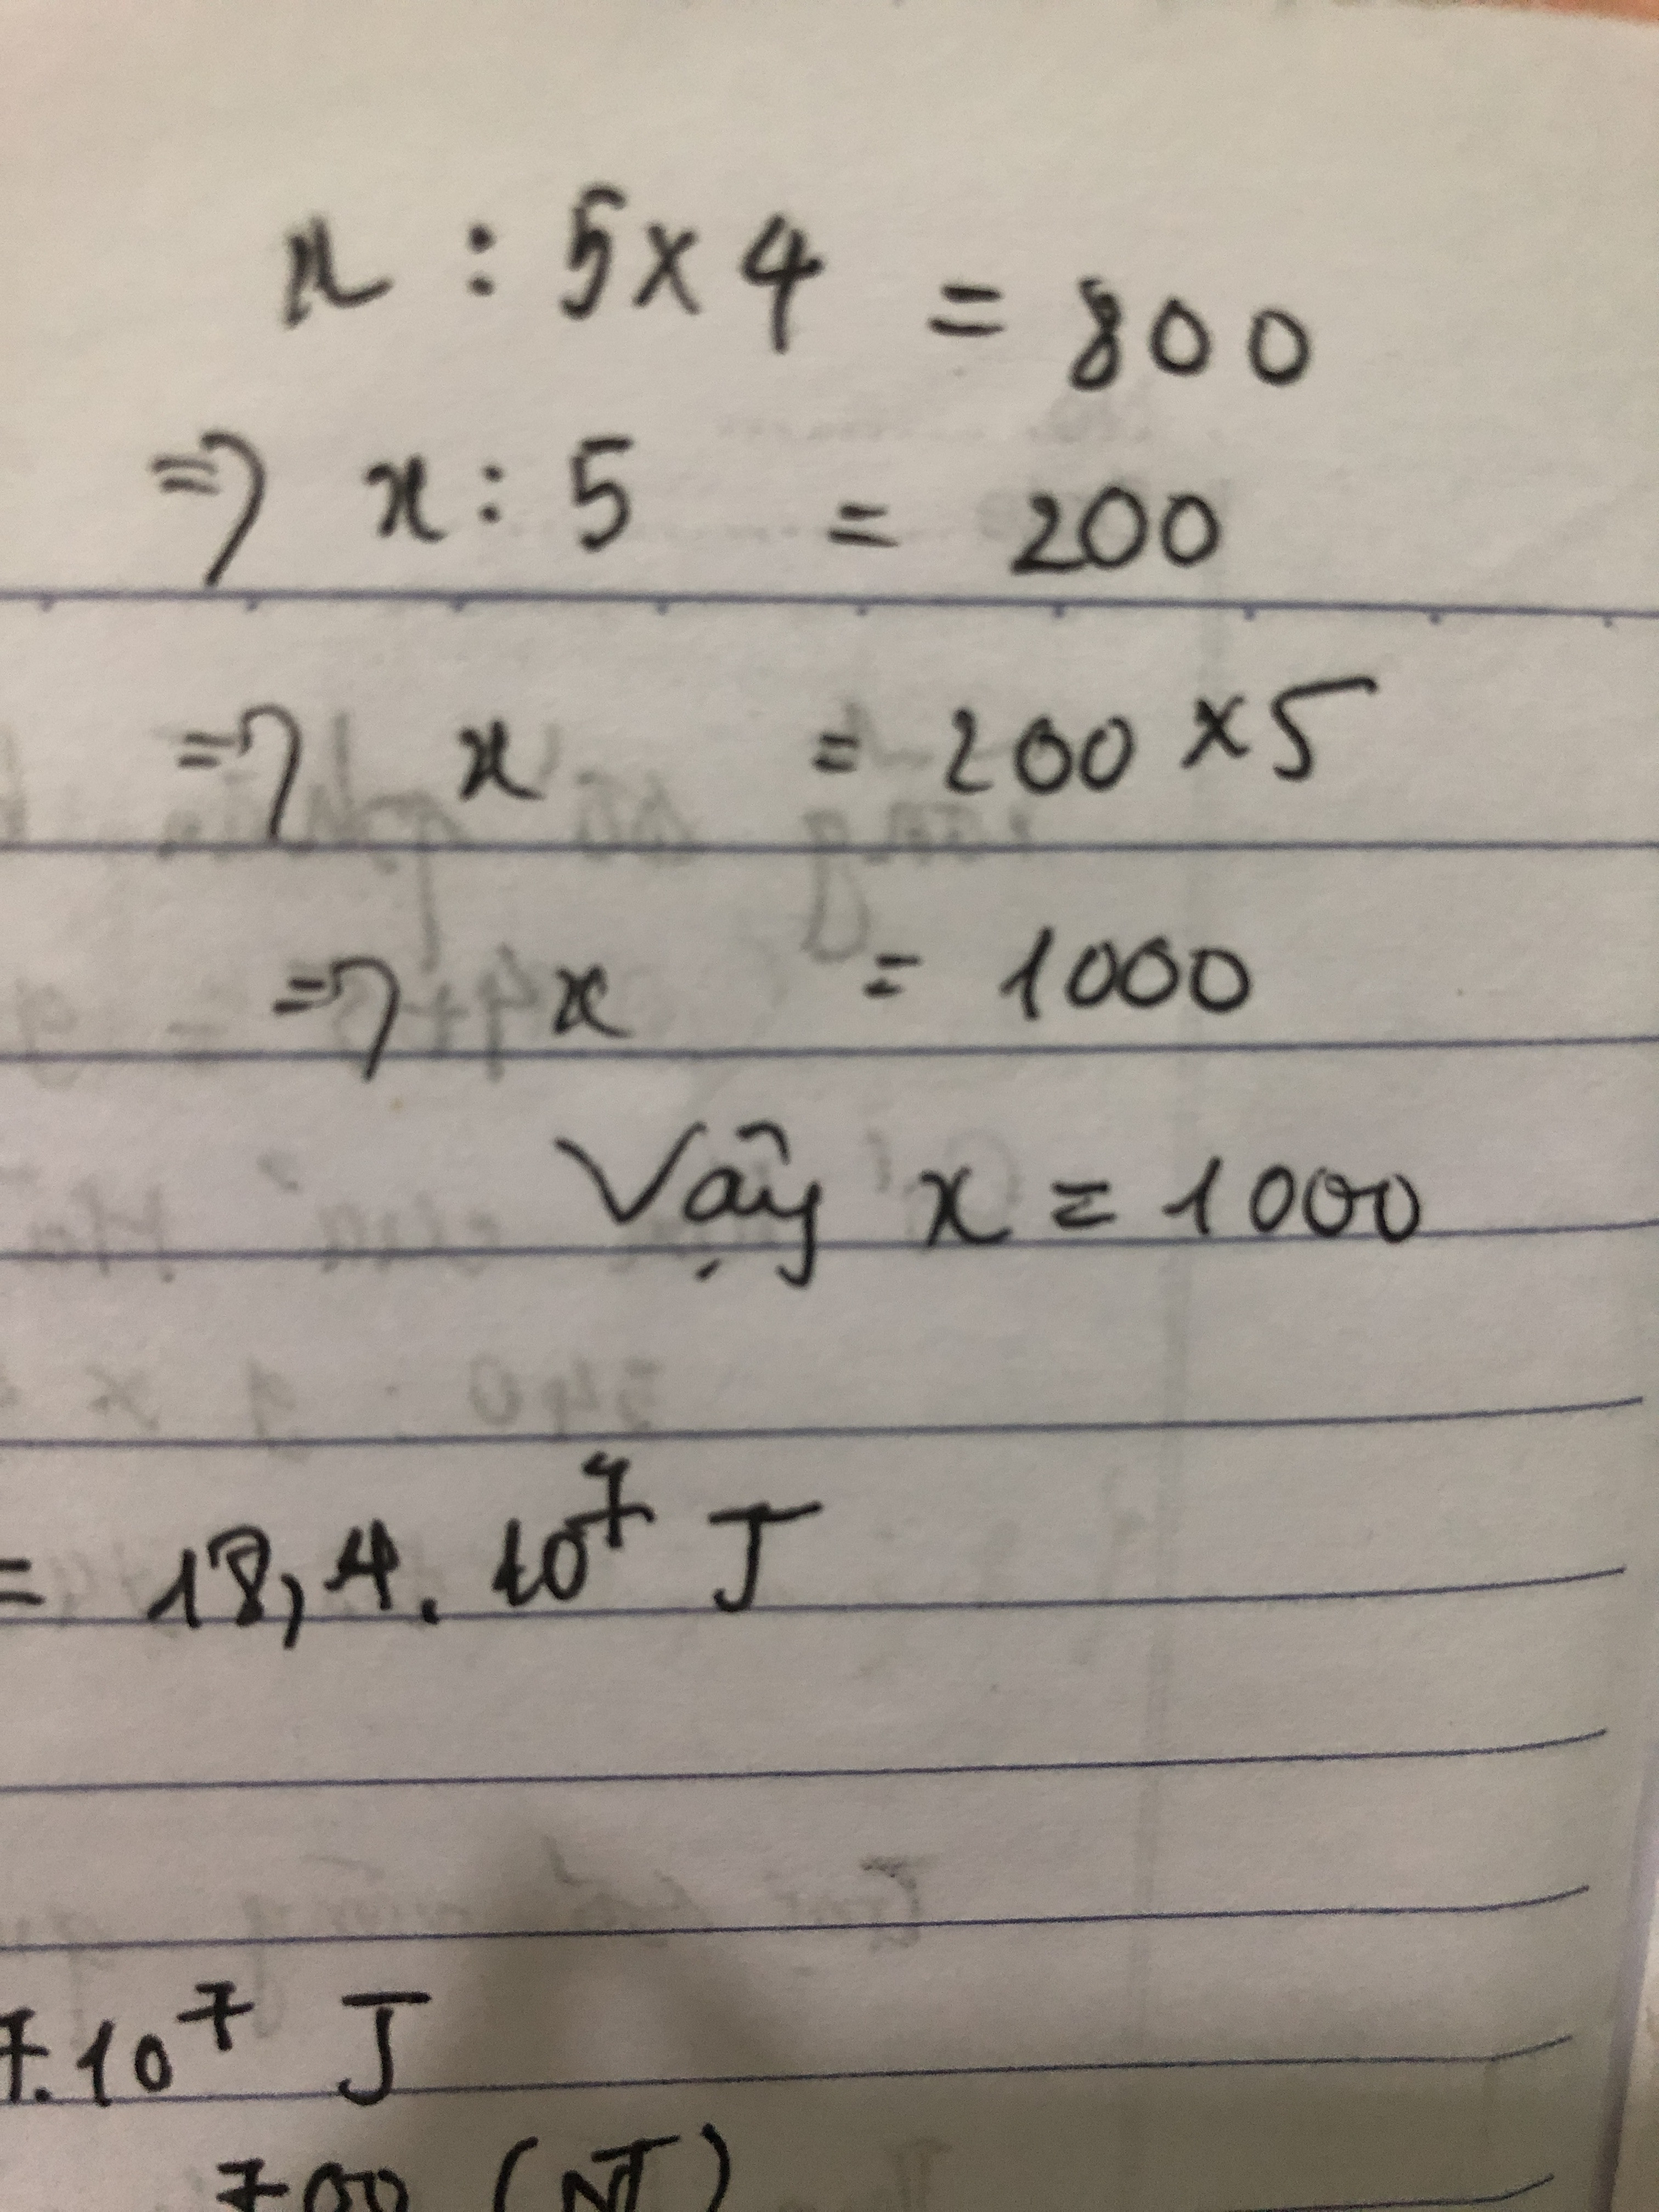 x : 5 x 4 = 800
=> x : 5 = 200
=> x = 200 x 5
=> x = 1000
Vậy x = 1000
= 18,4. 10⁷ J
7.10⁷ J
700 (NT)